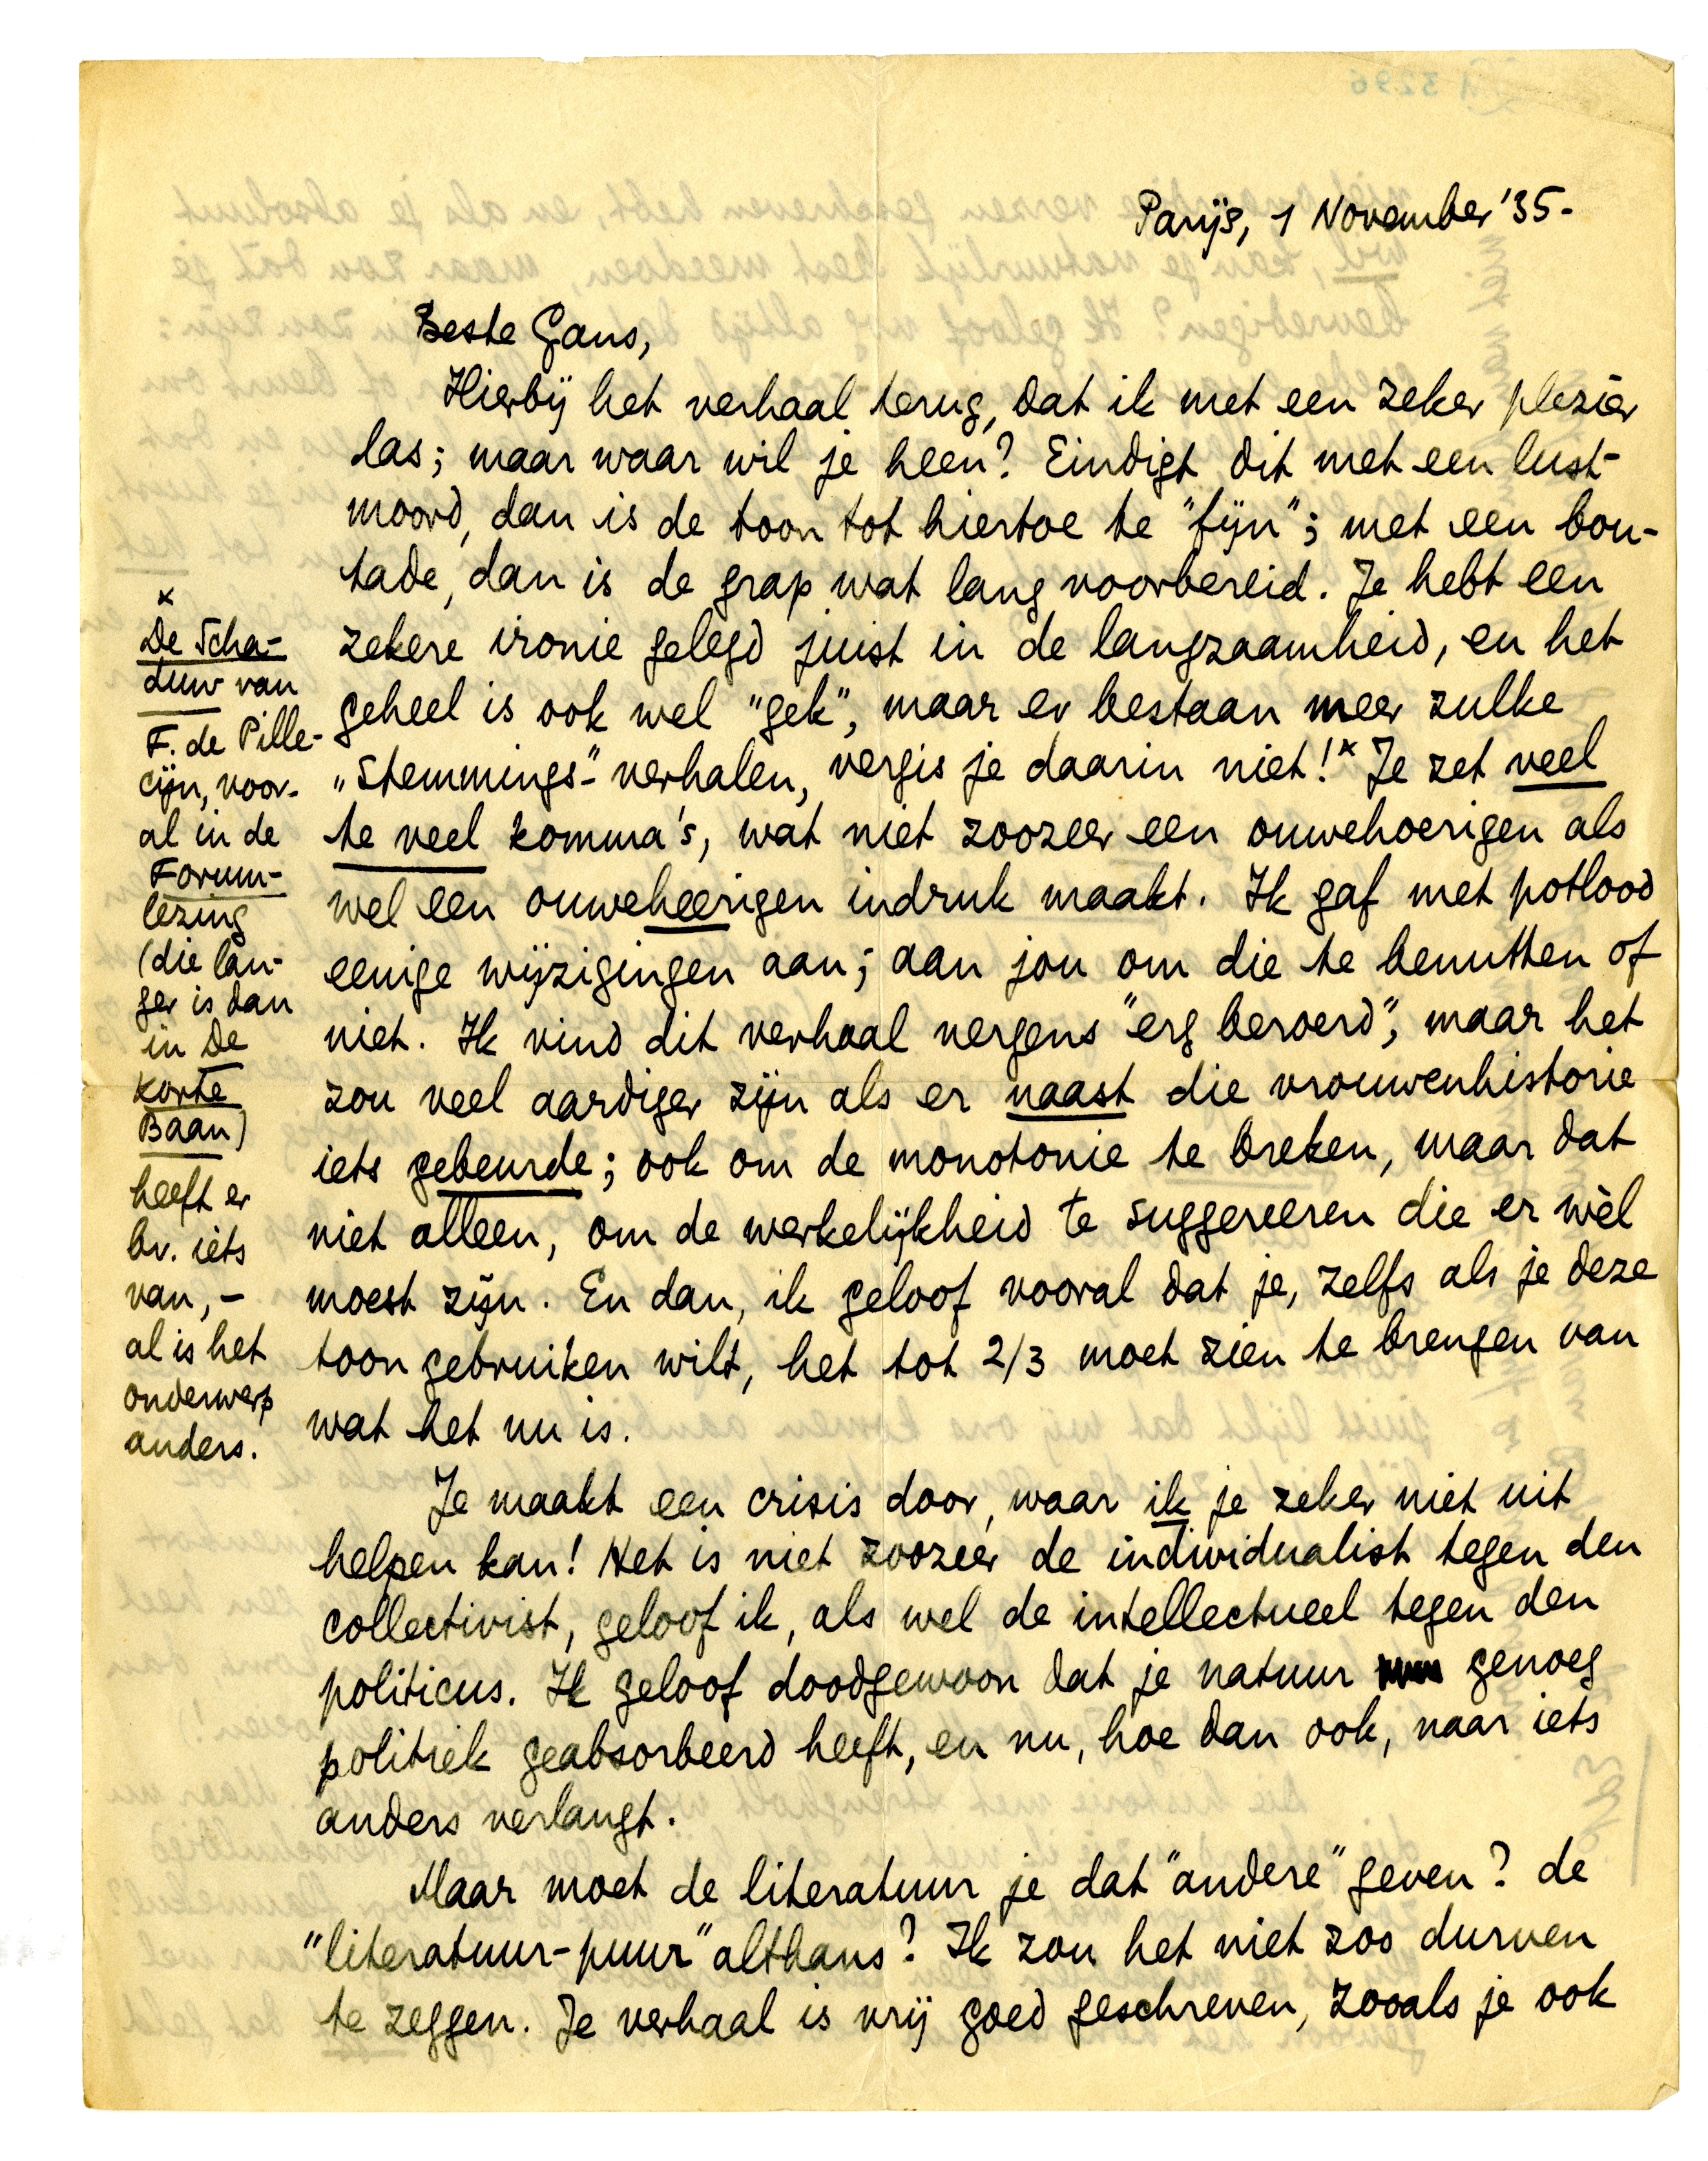 Parijs, 1 November '35.
Beste Gans,
Hierbij het verhaal terug, dat ik met een zeker plezier
las; maar waar wil je heen? Eindigt dit met een lust-
moord, dan is de toon tot hiertoe te "fijn"; met een bou-
tade, dan is de grap wat lang voorbereid. Je hebt een
zekere ironie gelegd juist in de langzaamheid, en het
geheel is ook wel "gek", maar er bestaan meer zulke
"stemmings"-verhalen, vergis je daarin niet!* Je zet veel
te veel komma's, wat niet zoozeer een ouwehoerigen als
wel een ouweheerigen indruk maakt. Ik gaf met potlood
eenige wijzigingen aan; aan jou om die te benutten of
niet. Ik vind dit verhaal nergens "erg beroerd", maar het
zou veel aardiger zijn als er naast die vrouwenhistorie
iets gebeurde; ook om de monotonie te breken, maar dat
niet alleen, om de werkelijkheid te suggereeren die er wèl
moest zijn. En dan, ik geloof vooral dat je, zelfs als je deze
toon gebruiken wilt, het tot 2/3 moet zien te brengen van
wat het nu is.
Je maakt een crisis door, waar ik je zeker niet uit
helpen kan! Het is niet zoozeer de individualist tegen den
collectivist, geloof ik, als wel de intellectueel tegen den
politicus. Ik geloof doodgewoon dat je natuur genoeg
politiek geabsorbeerd heeft, en nu, hoe dan ook, naar iets
anders verlangt.
Maar moet de literatuur je dat "andere" geven? de
"literatuur-puur" althans? Ik zou het niet zoo durven
te zeggen. Je verhaal is vrij goed geschreven, zooals je ook
*
De Scha-
duw van
F. de Pille-
cijn, voor-
al in de
Forum-
lezing
(die lan-
ger is dan
in De
Korte
Baan)
heeft er
bv. iets
van, -
al is het
onderwerp
anders.